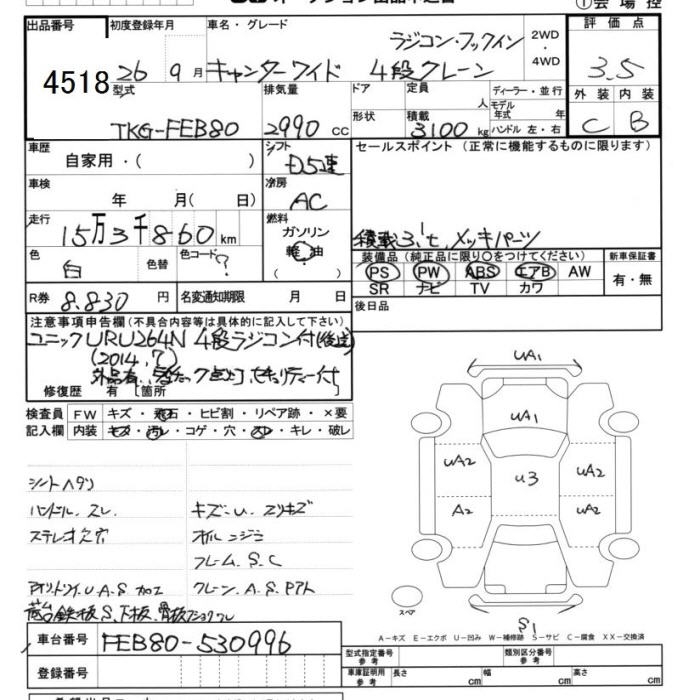 オークション出品申込書
①会場控
出品番号 4518
初度登録年月 26 9月
車名・グレード ラジコン・フックイン
キャンターワイド 4段クレーン
2WD ・ 4WD
評価点 3.5
外装 内装
C B
型式 TKG-FEB80
排気量 2990 cc
ドア 形状
定員 人
積載 3100 kg
ディーラー・並行
モデル年式 年
ハンドル 左・右
車歴 自家用・( )
シフト D5速
セールスポイント (正常に機能するものに限ります)
車検 年 月( 日)
冷房 AC
走行 15万3千860 km
燃料 ガソリン 軽油 ( )
積載3.1t、メッキパーツ
色 白 色替 色コード ?
装備品 (純正品に限り○をつけてください)
新車保証書
PS PW ABS エアB AW
SR ナビ TV カワ
有・無
R券 8.830 円
名変通知期限 月 日
後日品
注意事項申告欄(不具合内容等は具体的に記入して下さい)
ユニックURU264N 4段ラジコン付
(2014.7)
修復歴 有 [箇所
検査員 FW キズ・飛石・ヒビ割・リペア跡・×要
記入欄 内装 キズ・汚レ・コゲ・穴・スレ・キレ・破レ
シートヘタリ
ハンドル、スレ キズ・U、エクキズ
ステレオ欠穴 オイルニジミ
フレーム、S、C
U、A、S、加工 クレーン、A、S、Pアト
荷台鉄板S、下板、骨板
UA1
UA1
UA2 U3 UA2
A2 UA2
スペア
S1
A-キズ E-エクボ U-凹み W-補修跡 S-サビ C-腐食 XX-交換済
車台番号 FEB80-530996
登録番号
型式指定番号 参考
類別区分番号 参考
車庫証明用 参考 長さ cm 幅 cm 高さ cm